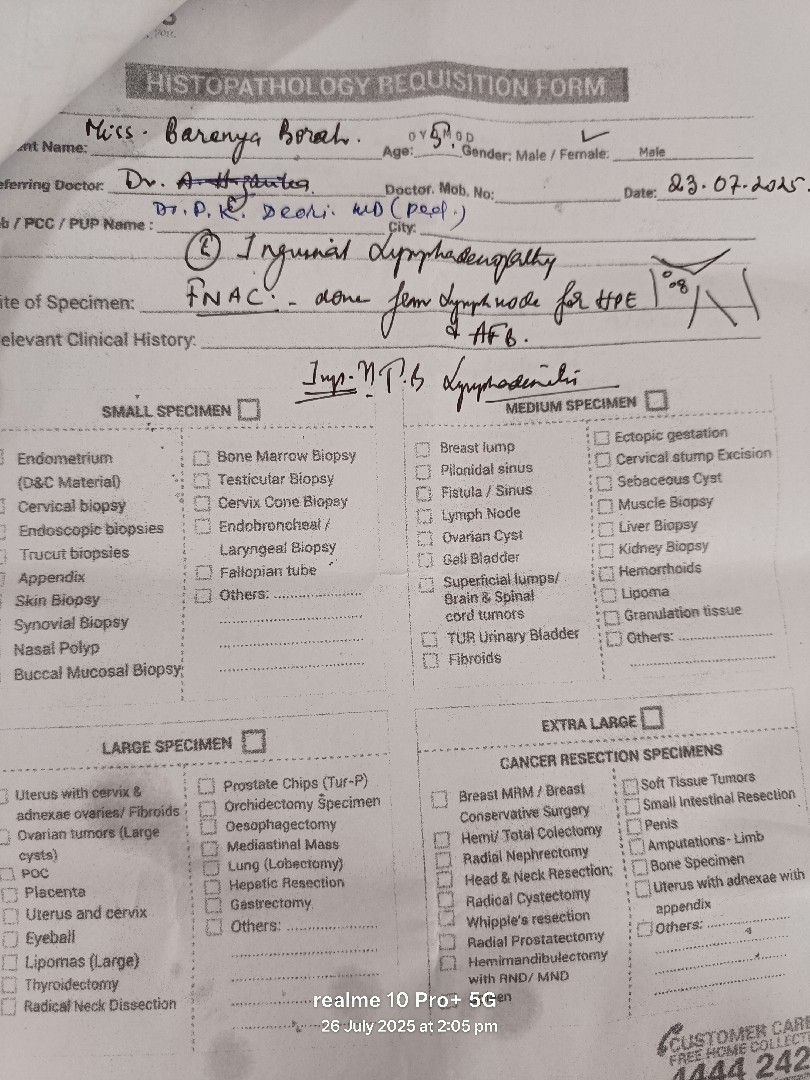 HISTOPATHOLOGY REQUISITION FORM
nt Name: Miss. Baranya Borah. Age: 0 Y 5 M 0 D Gender: Male / Female: ✓ Male
eferring Doctor: Dr. Doctor. Mob. No: Date: 23.07.2025.
b / PCC / PUP Name : Dr. P. K. Deori. MD (Ped.) City:
Inguinal Lymphadenopathy
ite of Specimen: FNAC. - done from Lymph node for HPE
& AFB.
elevant Clinical History:
Imp. T.B Lymphadenitis
SMALL SPECIMEN
Endometrium
(D&C Material)
Cervical biopsy
Endoscopic biopsies
Trucut biopsies
Appendix
Skin Biopsy
Synovial Biopsy
Nasal Polyp
Buccal Mucosal Biopsy
Bone Marrow Biopsy
Testicular Biopsy
Cervix Cone Biopsy
Endobroncheal /
Laryngeal Biopsy
Fallopian tube
Others:
MEDIUM SPECIMEN
Breast lump
Pilonidal sinus
Fistula / Sinus
Lymph Node
Ovarian Cyst
Gall Bladder
Superficial lumps/
Brain & Spinal
cord tumors
TUR Urinary Bladder
Fibroids
Ectopic gestation
Cervical stump Excision
Sebaceous Cyst
Muscle Biopsy
Liver Biopsy
Kidney Biopsy
Hemorrhoids
Lipoma
Granulation tissue
Others:
LARGE SPECIMEN
Uterus with cervix &
adnexae ovaries/ Fibroids
Ovarian tumors (Large
cysts)
POC
Placenta
Uterus and cervix
Eyeball
Lipomas (Large)
Thyroidectomy
Radical Neck Dissection
Prostate Chips (Tur-P)
Orchidectomy Specimen
Oesophagectomy
Mediastinal Mass
Lung (Lobectomy)
Hepatic Resection
Gastrectomy
Others:
EXTRA LARGE
CANCER RESECTION SPECIMENS
Breast MRM / Breast
Conservative Surgery
Hemi/ Total Colectomy
Radial Nephrectomy
Head & Neck Resection;
Radical Cystectomy
Whipple's resection
Radial Prostatectomy
Hemimandibulectomy
with RND/ MND
Soft Tissue Tumors
Small Intestinal Resection
Penis
Amputations- Limb
Bone Specimen
Uterus with adnexae with
appendix
Others:
realme 10 Pro+ 5G
26 July 2025 at 2:05 pm
CUSTOMER CARE
FREE HOME COLLECT
4444 242